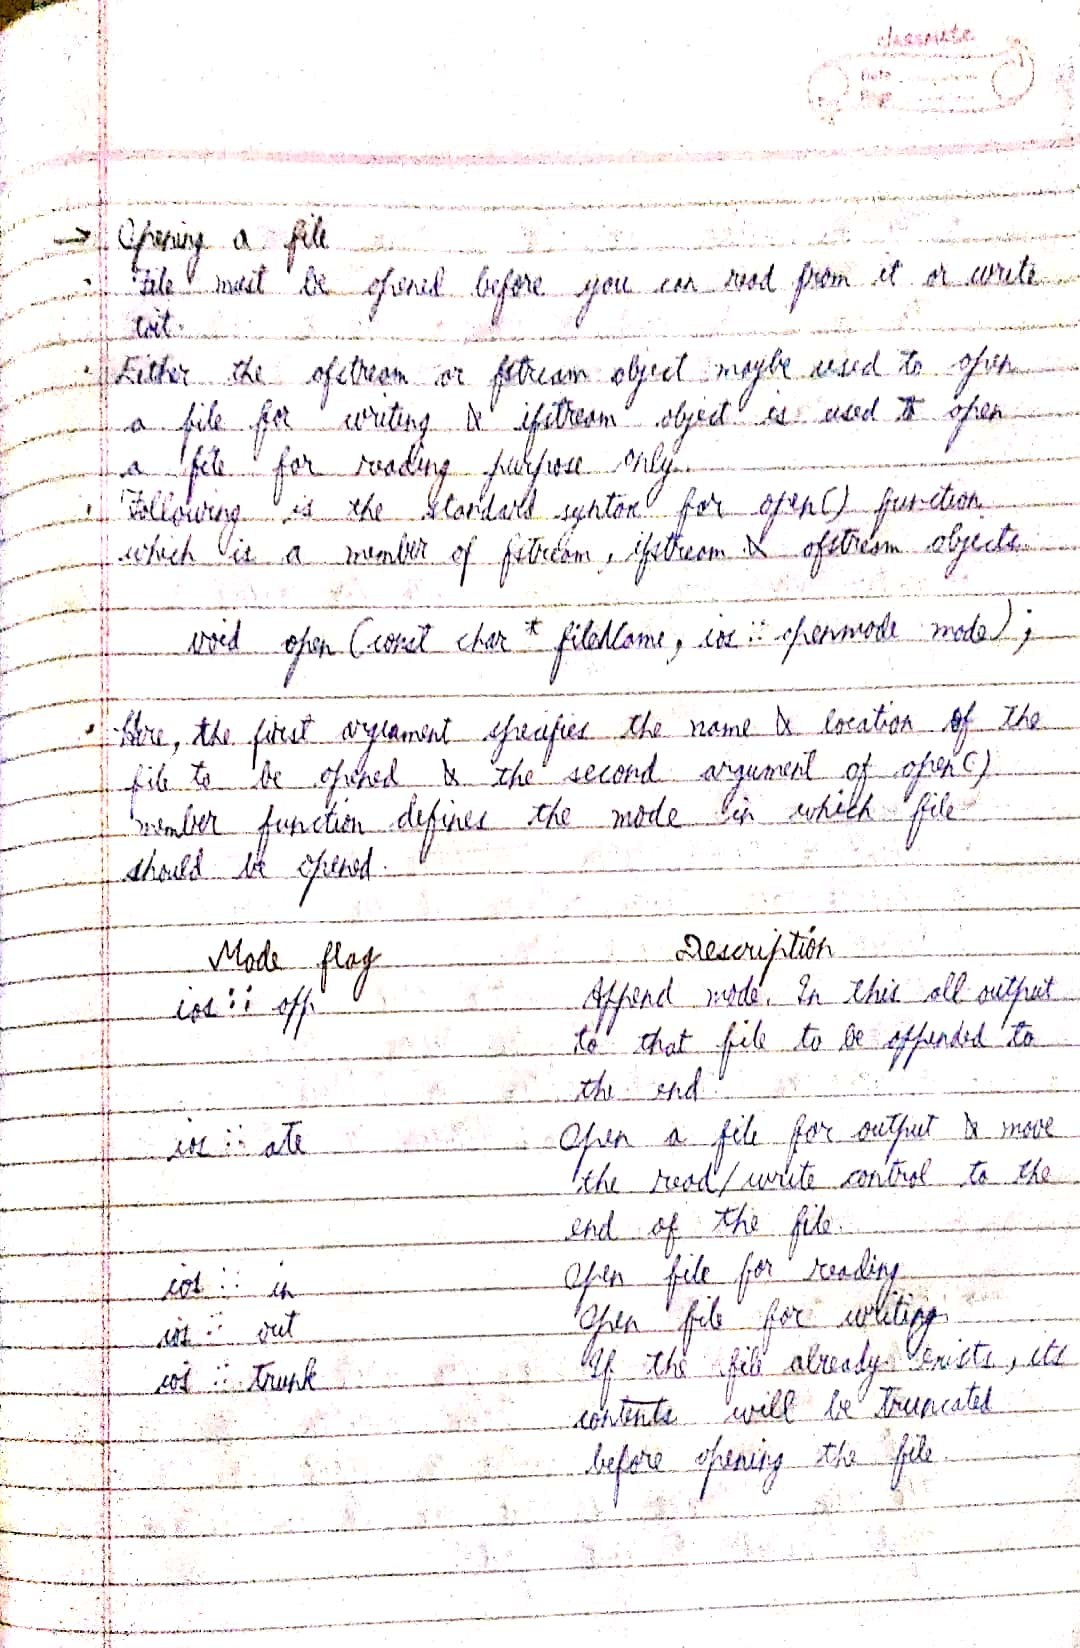 → Opening a file
• File must be opened before you can read from it or write
toit.
• Either the ofstream or fstream object maybe used to open
a file for writing & ifstream object is used to open
a file for reading purpose only.
• Following is the standard syntax for open() function
which is a member of fstream, ifstream & ofstream objects.
void open (const char * fileName, ios :: openmode mode);
• Here, the first argument specifies the name & location of the
file to be opened & the second argument of open()
member function defines the mode in which file
should be opened.
Mode flag Description
ios :: app Append mode. In this all output
to that file to be appended to
the end.
ios :: ate Open a file for output & move
the read/write control to the
end of the file.
ios :: in Open file for reading
ios :: out Open file for writing
ios :: trunk If the file already exists, its
contents will be truncated
before opening the file.